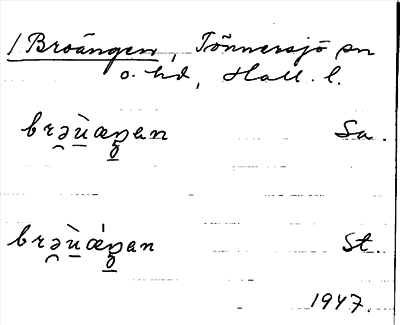 /Broängen, Tönnersjö sn
o. hd, Hall. l.
brəùæŋan Sa.
brəùǽŋan St.
1947.